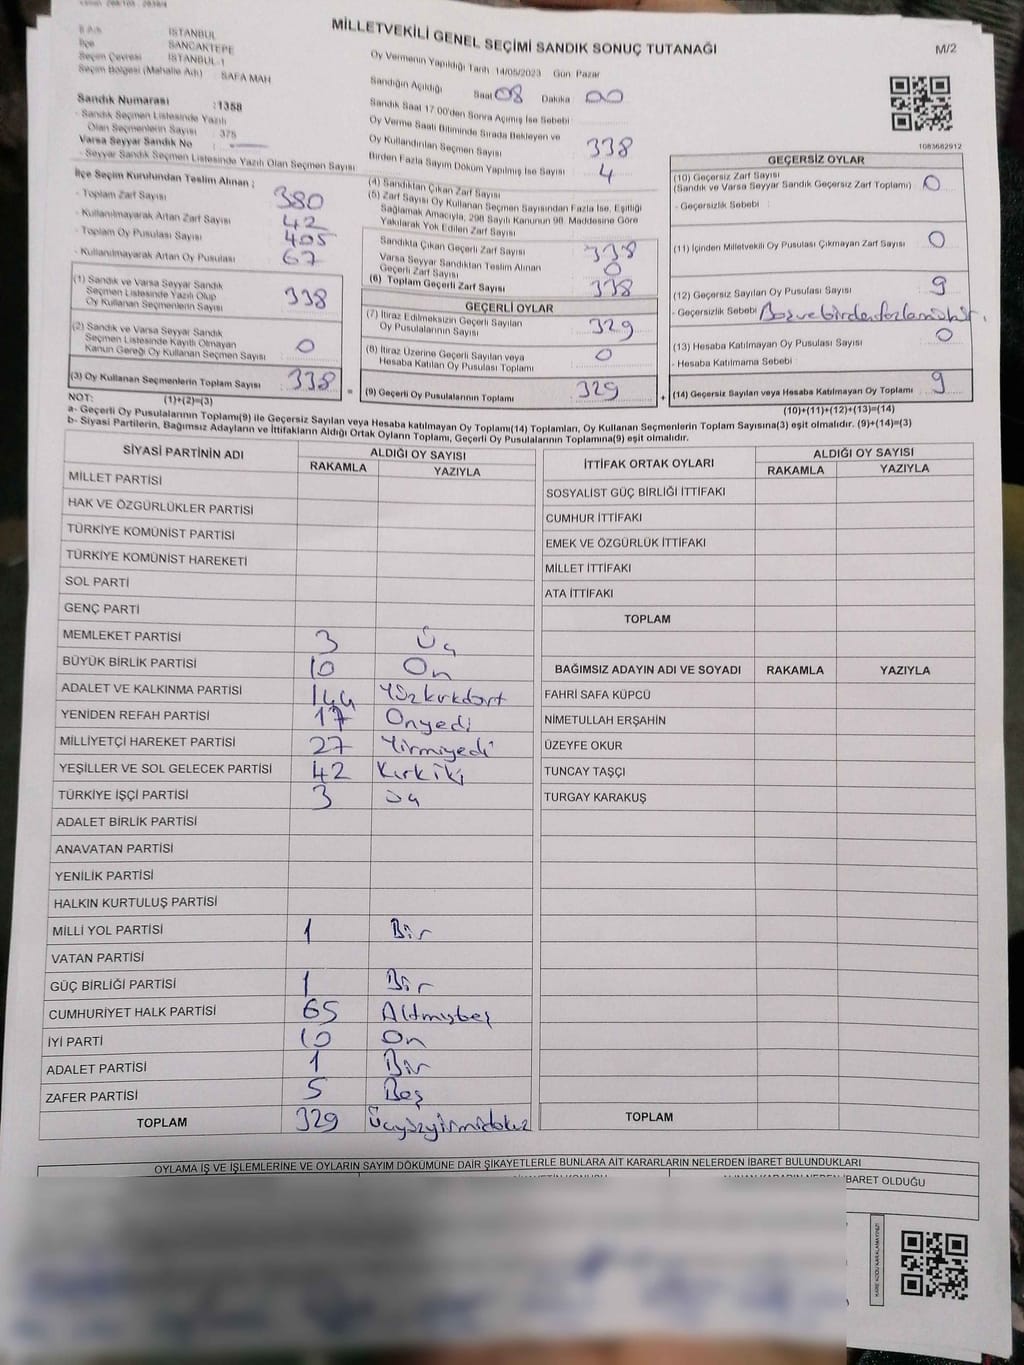 MİLLETVEKİLİ GENEL SEÇİMİ SANDIK SONUÇ TUTANAĞI
M/2
İSTANBUL
İlçe SANCAKTEPE
Seçim Çevresi İSTANBUL-1
Seçim Bölgesi (Mahalle Adı) SAFA MAH
Sandık Numarası : 1358
- Sandık Seçmen Listesinde Yazılı
Olan Seçmenlerin Sayısı : 375
Varsa Seyyar Sandık No
- Seyyar Sandık Seçmen Listesinde Yazılı Olan Seçmen Sayısı
İlçe Seçim Kurulundan Teslim Alınan ;
- Toplam Zarf Sayısı 380
- Kullanılmayarak Artan Zarf Sayısı 42
- Toplam Oy Pusulası Sayısı 405
- Kullanılmayarak Artan Oy Pusulası 67
(1) Sandık ve Varsa Seyyar Sandık
Seçmen Listesinde Yazılı Olup
Oy Kullanan Seçmenlerin Sayısı 338
(2) Sandık ve Varsa Seyyar Sandık
Seçmen Listesinde Kayıtlı Olmayan
Kanun Gereği Oy Kullanan Seçmen Sayısı 0
(3) Oy Kullanan Seçmenlerin Toplam Sayısı 338
Oy Vermenin Yapıldığı Tarih 14/05/2023 Gün Pazar
Sandığın Açıldığı Saat 08 Dakika 00
Sandık Saat 17.00'den Sonra Açılmış İse Sebebi
Oy Verme Saati Bitiminde Sırada Bekleyen ve
Oy Kullandırılan Seçmen Sayısı 338
Birden Fazla Sayım Döküm Yapılmış İse Sayısı 4
(4) Sandıktan Çıkan Zarf Sayısı
(5) Zarf Sayısı Oy Kullanan Seçmen Sayısından Fazla İse, Eşitliği
Sağlamak Amacıyla, 298 Sayılı Kanunun 98. Maddesine Göre
Yakılarak Yok Edilen Zarf Sayısı
Sandıkta Çıkan Geçerli Zarf Sayısı 338
Varsa Seyyar Sandıktan Teslim Alınan
Geçerli Zarf Sayısı 0
(6) Toplam Geçerli Zarf Sayısı 338
GEÇERLİ OYLAR
(7) İtiraz Edilmeksizin Geçerli Sayılan
Oy Pusulalarının Sayısı 329
(8) İtiraz Üzerine Geçerli Sayılan veya
Hesaba Katılan Oy Pusulası Toplamı 0
= (9) Geçerli Oy Pusulalarının Toplamı 329
1083682912
GEÇERSİZ OYLAR
(10) Geçersiz Zarf Sayısı
(Sandık ve Varsa Seyyar Sandık Geçersiz Zarf Toplamı) 0
- Geçersizlik Sebebi :
(11) İçinden Milletvekili Oy Pusulası Çıkmayan Zarf Sayısı 0
(12) Geçersiz Sayılan Oy Pusulası Sayısı 9
- Geçersizlik Sebebi
(13) Hesaba Katılmayan Oy Pusulası Sayısı 0
- Hesaba Katılmama Sebebi
+ (14) Geçersiz Sayılan veya Hesaba Katılmayan Oy Toplamı 9
NOT: (1)+(2)=(3) (10)+(11)+(12)+(13)=(14)
a- Geçerli Oy Pusulalarının Toplamı(9) ile Geçersiz Sayılan veya Hesaba katılmayan Oy Toplamı(14) Toplamları, Oy Kullanan Seçmenlerin Toplam Sayısına(3) eşit olmalıdır. (9)+(14)=(3)
b- Siyasi Partilerin, Bağımsız Adayların ve İttifakların Aldığı Ortak Oyların Toplamı, Geçerli Oy Pusulalarının Toplamına(9) eşit olmalıdır.
SİYASİ PARTİNİN ADI ALDIĞI OY SAYISI
RAKAMLA YAZIYLA
MİLLET PARTİSİ
HAK VE ÖZGÜRLÜKLER PARTİSİ
TÜRKİYE KOMÜNİST PARTİSİ
TÜRKİYE KOMÜNİST HAREKETİ
SOL PARTİ
GENÇ PARTİ
MEMLEKET PARTİSİ 3 Üç
BÜYÜK BİRLİK PARTİSİ 10 On
ADALET VE KALKINMA PARTİSİ 144 Yüzkırkdört
YENİDEN REFAH PARTİSİ 17 Onyedi
MİLLİYETÇİ HAREKET PARTİSİ 27 Yirmiyedi
YEŞİLLER VE SOL GELECEK PARTİSİ 42 Kırkiki
TÜRKİYE İŞÇİ PARTİSİ 3 Üç
ADALET BİRLİK PARTİSİ
ANAVATAN PARTİSİ
YENİLİK PARTİSİ
HALKIN KURTULUŞ PARTİSİ
MİLLİ YOL PARTİSİ 1 Bir
VATAN PARTİSİ
GÜÇ BİRLİĞİ PARTİSİ 1 Bir
CUMHURİYET HALK PARTİSİ 65 Altmışbeş
İYİ PARTİ 10 On
ADALET PARTİSİ 1 Bir
ZAFER PARTİSİ 5 Beş
TOPLAM 329 Üçyüzyirmidokuz
İTTİFAK ORTAK OYLARI ALDIĞI OY SAYISI
RAKAMLA YAZIYLA
SOSYALİST GÜÇ BİRLİĞİ İTTİFAKI
CUMHUR İTTİFAKI
EMEK VE ÖZGÜRLÜK İTTİFAKI
MİLLET İTTİFAKI
ATA İTTİFAKI
TOPLAM
BAĞIMSIZ ADAYIN ADI VE SOYADI RAKAMLA YAZIYLA
FAHRİ SAFA KÜPCÜ
NİMETULLAH ERŞAHİN
ÜZEYFE OKUR
TUNCAY TAŞÇI
TURGAY KARAKUŞ
TOPLAM
OYLAMA İŞ VE İŞLEMLERİNE VE OYLARIN SAYIM DÖKÜMÜNE DAİR ŞİKAYETLERLE BUNLARA AİT KARARLARIN NELERDEN İBARET BULUNDUKLARI
İBARET OLDUĞU